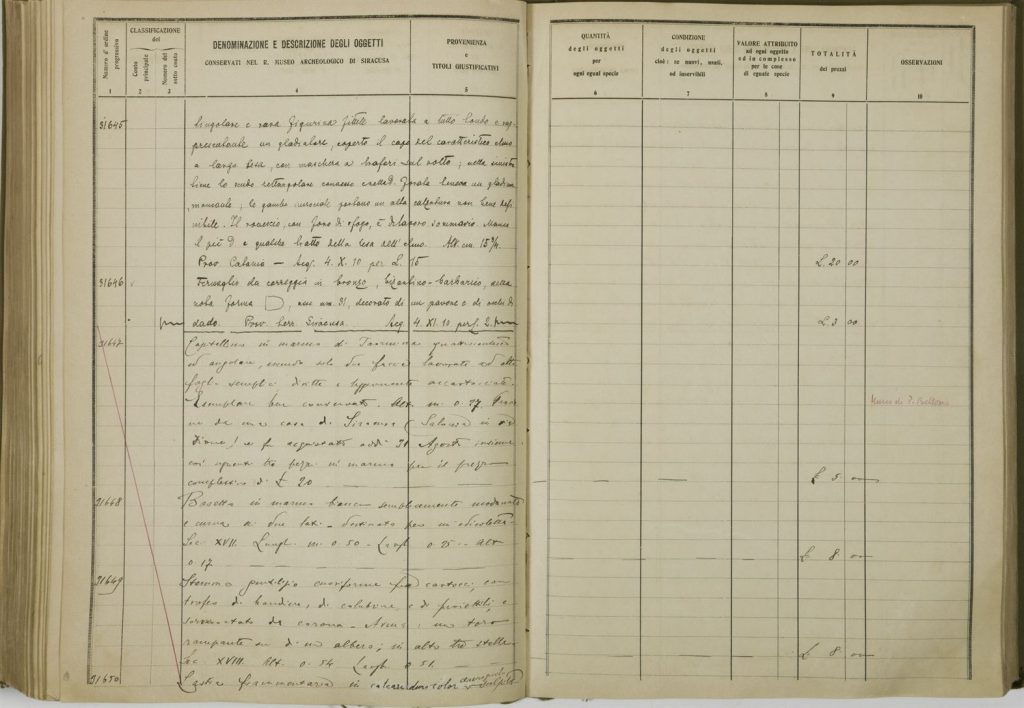 Numero d'ordine progressivo
CLASSIFICAZIONE
del
Conto principale
Numero del sotto conto
DENOMINAZIONE E DESCRIZIONE DEGLI OGGETTI
CONSERVATI NEL R. MUSEO ARCHEOLOGICO DI SIRACUSA
PROVENIENZA
e
TITOLI GIUSTIFICATIVI
1 2 3 4 5
31645 Singolare e rara figurina fittile lavorata a tutto tondo e rap-
presentante un gladiatore, coperto il capo del caratteristico elmo
a larga tesa, con maschera a trafori sul volto; nella sinistra
tiene lo scudo rettangolare convesso e nella d.
mancante; le gambe portano un alta calzatura non bene defi-
nibile. Il rovescio, con foro di sfogo, è di lavoro sommario. Manca
il piè D e qualche tratto della tesa dell'elmo. Alt. cm. 15 3/4.
Prov Catania — Acq. 4. X. 10 per L. 15
31646 Fermaglio da correggia in bronzo, bizantino-barbarico, nella
nota forma D, mm. 31, decorato di un pavone e de di
dado. Prov. Siracusa. Acq 4. XI. 10 per £. 2.
31647 Capitellino in marmo di Taormina
ed angolare, avendo solo due facce lavorate ad alte
foglie semplici diritte e leggermente accartocciate.
Esemplare ben conservato. Alt. m. 0.27. Provie-
ne da una casa di Siracusa (
) e fu acquistato addì 31 Agosto insieme
coi seguenti tre pezzi in marmo per il prezzo
complessivo di £ 20
31648 Basetta in marmo bianco semplicemente modanata
e curva ai due lati - destinata per un edicoletta.
Sec. XVII. Lungh. m. 0.50 - Largh 0.25 - Alt
0.17
31649 Stemma gentilizio cuoriforme fra cartocci, con
trofeo di bandiere, di colubrine, e di proiettili, e
sormontato da corona - Arme: un toro
rampante su di un albero; in alto tre stelle.
Sec XVIII. Alt. 0.54 Largh 0.51.
31650 Lastra frammentaria in calcare duro color
QUANTITÀ
degli oggetti
per
ogni egual specie
CONDIZIONE
degli oggetti
cioè: se nuovi, usati,
od inservibili
VALORE ATTRIBUITO
ad ogni oggetto
ed in complesso
per le cose
di eguale specie
TOTALITÀ
dei prezzi
OSSERVAZIONI
6 7 8 9 10
L. 20 00
L. 3 00
Museo di P. Bellomo
£ 5
£ 8
£ 8